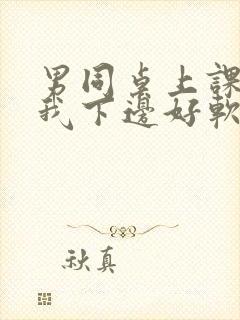 男同桌上課
我下邊好軟
秋真